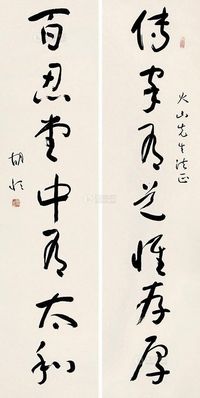 传家有道惟存厚
火山先生法正
百忍堂中有太和
胡